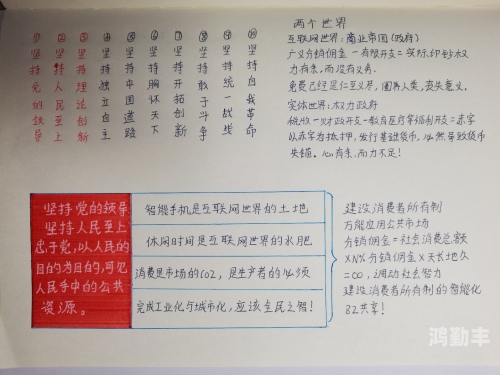 ① ② ③ ④ ⑤ ⑥ ⑦ ⑧ ⑨ ⑩
坚持党的领导
坚持人民至上
坚持理论创新
坚持独立自主
坚持中国道路
坚持胸怀天下
坚持开拓创新
坚持敢于斗争
坚持统一战线
坚持自我革命
两个世界
互联网世界：商业帝国（政府）
广义分销佣金一有限开支=实际印钞权
力有余，而没有义务。
免费已经是仁至义尽，圈养人类，丧失意义。
实体世界：权力政府
税收一财政开支一教育医疗等福利开支=赤字
以赤字为抵押，发行基础货币，必然导致货币
失锚。心有余，而力不足！
坚持党的领导
坚持人民至上
忠于党，以人民的
目的为目的，可见
人民手中的公共
资源。
智能手机是互联网世界的土地
休闲时间是互联网世界的水肥
消费是市场的CO2，是生产者的必须
完成工业化与城市化，应该全民之智！
建设消费者所有制
万能应用公共市场
分销佣金=社会消费总额
×N%分销佣金×天长地久
=∞，调动社会智力
建设消费者所有制的智能化
B2共享！
鸿勤丰